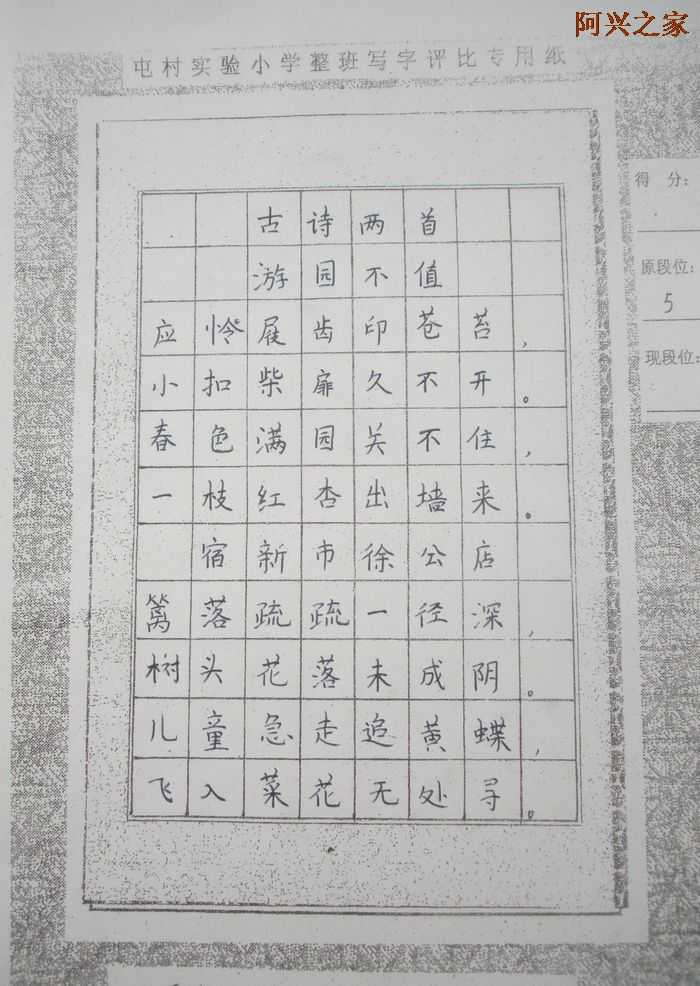 阿兴之家
屯村实验小学整班写字评比专用纸
古诗两首
游园不值
应怜屐齿印苍苔，
小扣柴扉久不开。
春色满园关不住，
一枝红杏出墙来。
宿新市徐公店
篱落疏疏一径深，
树头花落未成阴。
儿童急走追黄蝶，
飞入菜花无处寻。
得 分：
原段位：
5
现段位：